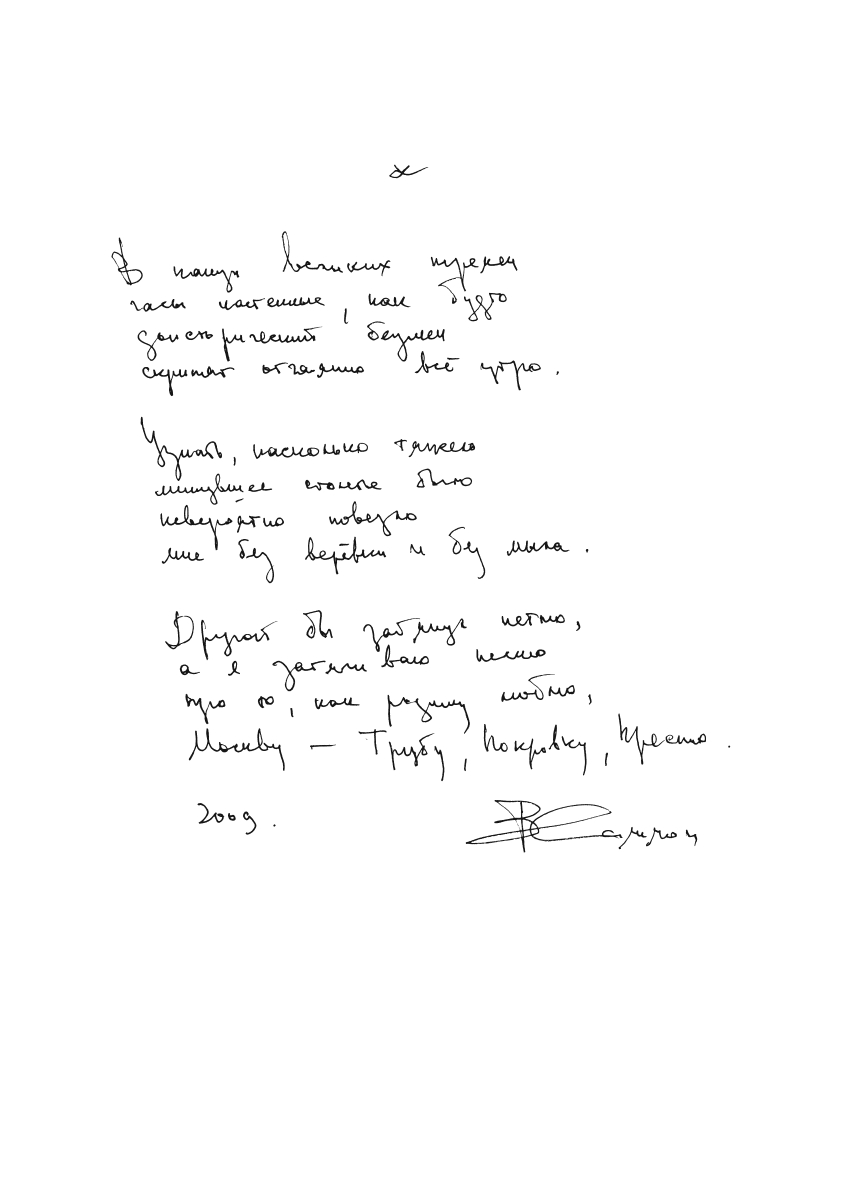 *
В канун великих перемен
часы настенные, как будто
доисторический безмен
скрипят отчаянно всё утро.
Узнать, насколько тяжело
минувшее столетье было
невероятно повезло
мне без верёвки и без мыла.
Другой бы затянул петлю,
а я затягиваю песню
про то, как родину люблю,
Москву — Трубу, Покровку, Пресню.
2009.